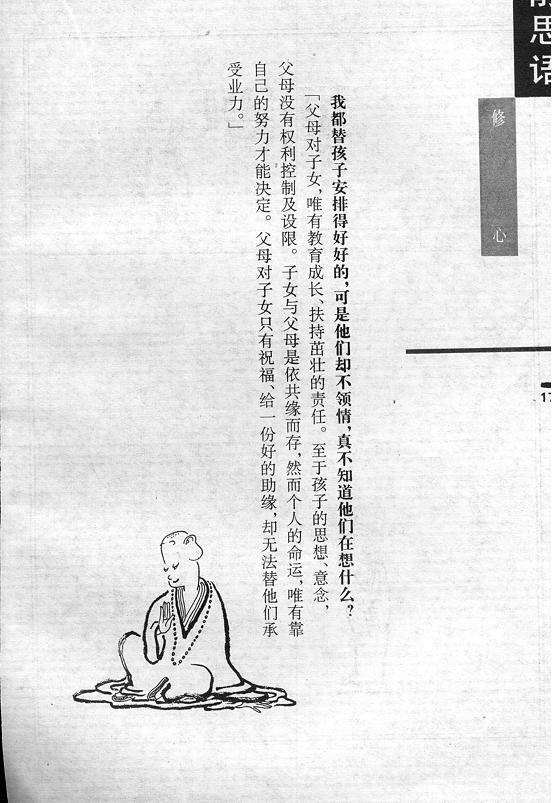 思语
修心
17
我都替孩子安排得好好的，可是他们却不领情，真不知道他们在想什么？
「父母对子女，唯有教育成长、扶持茁壮的责任。至于孩子的思想、意念，
父母没有权利控制及设限。子女与父母是依共缘而存，然而个人的命运，唯有靠
自己的努力才能决定。父母对子女只有祝福、给一份好的助缘，却无法替他们承
受业力。」